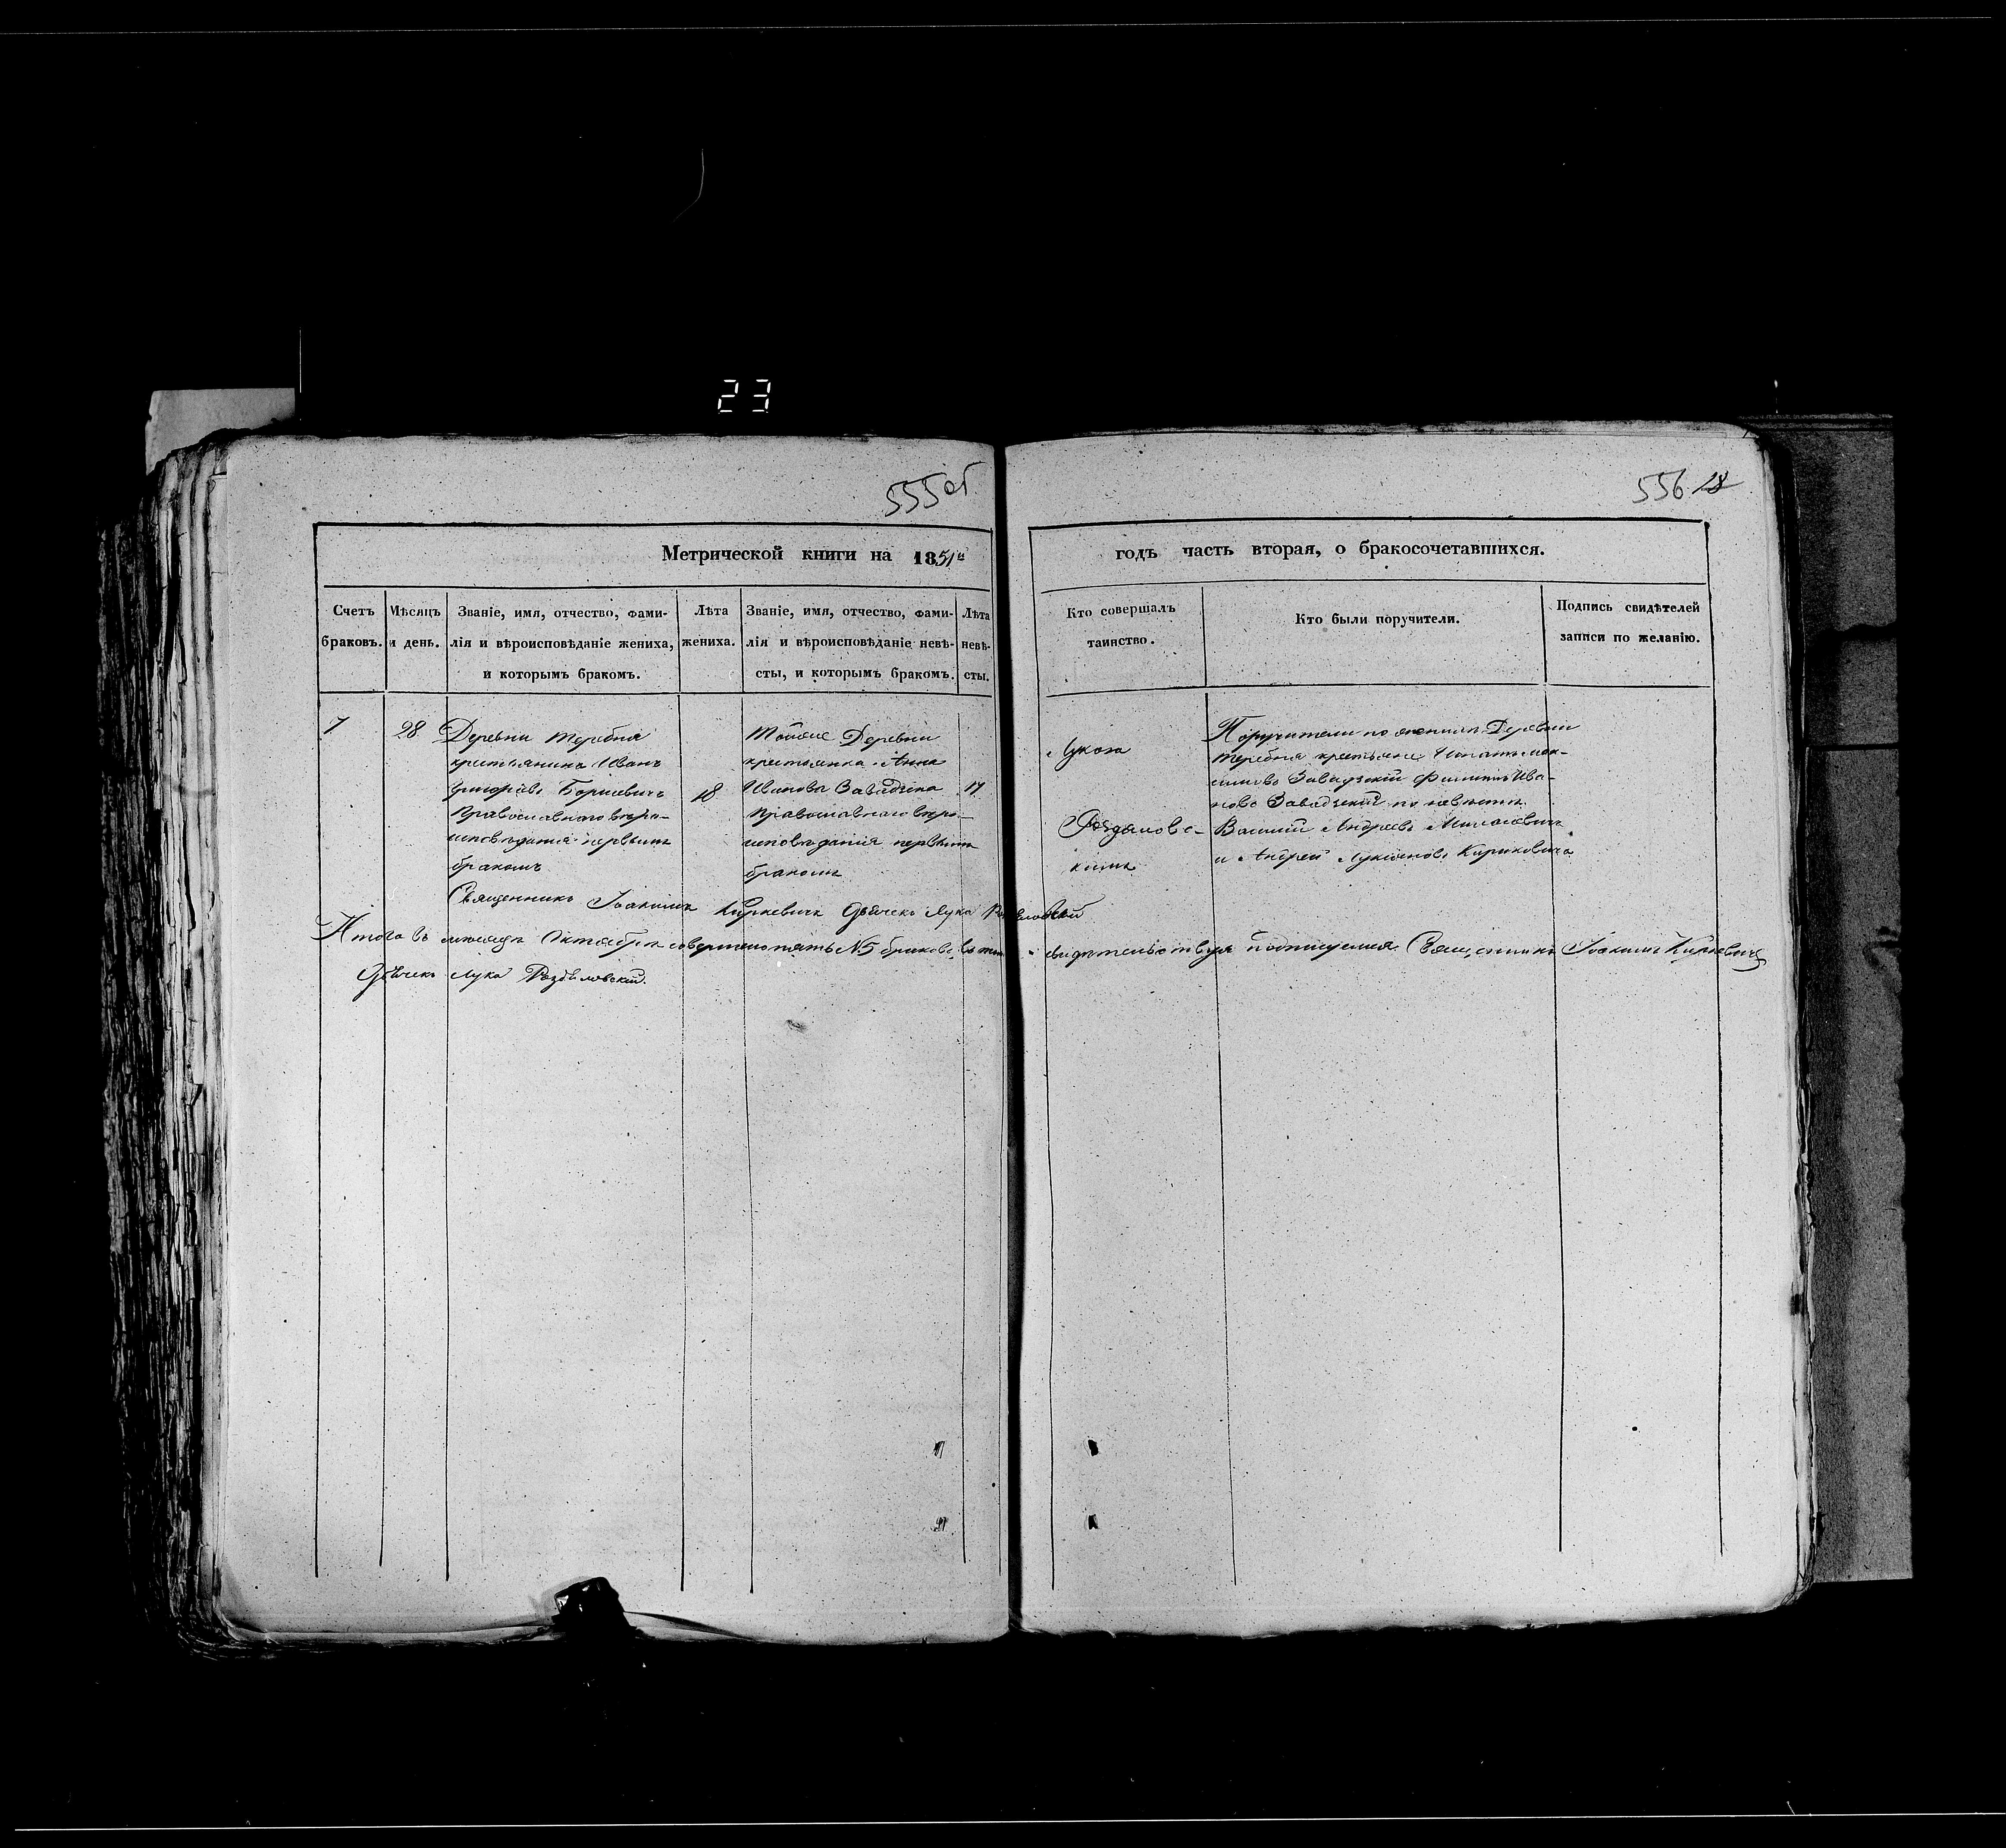 23
555об
556 18
Метрической книги на 1851й
годъ часть вторая, о бракосочетавшихся.
Счетъ браковъ.
Мѣсяцъ и день.
Званіе, имя, отчество, фами-
лія и вѣроисповѣданіе жениха,
и которымъ бракомъ.
Лѣта
жениха.
Званіе, имя, отчество, фами-
лія и вѣроисповѣданіе невѣ-
сты, и которымъ бракомъ.
Лѣта
невѣ-
сты.
Кто совершалъ
таинство.
Кто были поручители.
Подпись свидѣтелей
записи по желанію.
7
28
Деревни Теребня
крестьянинъ Иванъ
Григорьевъ Борисевичъ
Православнаго вѣро-
исповѣданія первымъ
бракомъ
18
Тойже Деревни
крестьянка Анна
Иванова Завадзка
Православнаго вѣро-
исповѣданія первымъ
бракомъ
17
Поручители по женихѣ Деревни
Теребня крестьяне Игнатъ Мак-
симовъ Завадзкій Филипъ Ива-
новъ Завадзкій по невѣстѣ
Василій Андреевъ
и Андрей Лукіяновъ Кириковичъ
Священникъ Іоакимъ Киркевичъ Дьячекъ Лука
Итого въ мѣсяцѣ Октябрѣ совершено пять №5 браковъ, въ томъ свидѣтельствуя подписуемся Священникъ Іоакимъ Киркевичъ
Дьячекъ Лука Роздяловскій.